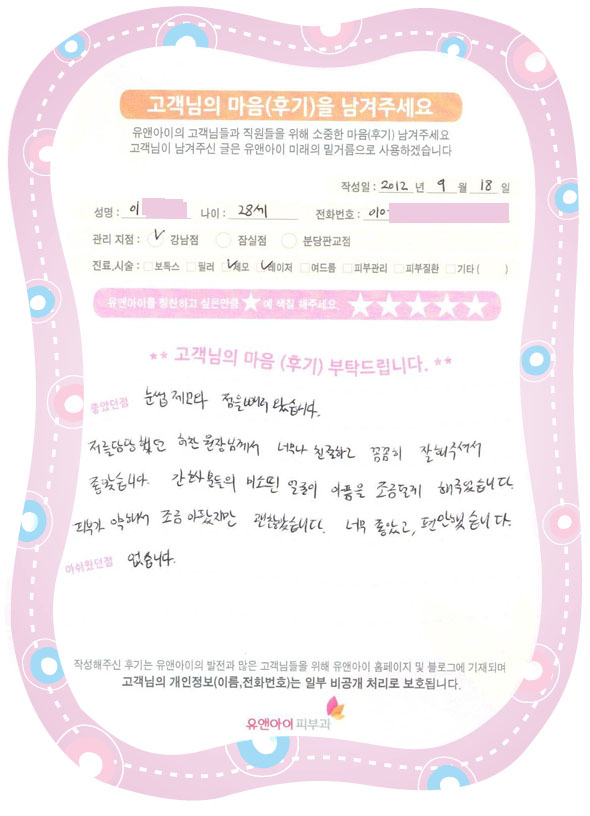 고객님의 마음(후기)을 남겨주세요
유앤아이의 고객님들과 직원들을 위해 소중한 마음(후기) 남겨주세요
고객님이 남겨주신 글은 유앤아이 미래의 밑거름으로 사용하겠습니다
작성일 : 2012 년 9 월 18 일
성명 : 이 나이 : 28세 전화번호 : 010
관리 지점 : 강남점 잠실점 분당판교점
진료,시술 : 보톡스 필러 제모 레이저 여드름 피부관리 피부질환 기타 ( )
유앤아이를 칭찬하고 싶은만큼 ★ 에 색칠 해주세요. ★★★★★
** 고객님의 마음 (후기) 부탁드립니다. **
좋았던점 눈썹 제모와 점을빼러 왔습니다.
저를담당했던 원장님께서 너무나 친절하고 꼼꼼히 잘해주셔서
좋았습니다. 간호사분들의 미소띤 얼굴이 아픔을 조금덜게 해주었습니다.
피부가 약해서 조금 아팠지만 괜찮았습니다. 너무 좋았고, 편안했습니다.
아쉬웠던점 없습니다.
작성해주신 후기는 유앤아이의 발전과 많은 고객님들을 위해 유앤아이 홈페이지 및 블로그에 기재되며
고객님의 개인정보(이름,전화번호)는 일부 비공개 처리로 보호됩니다.
유앤아이피부과